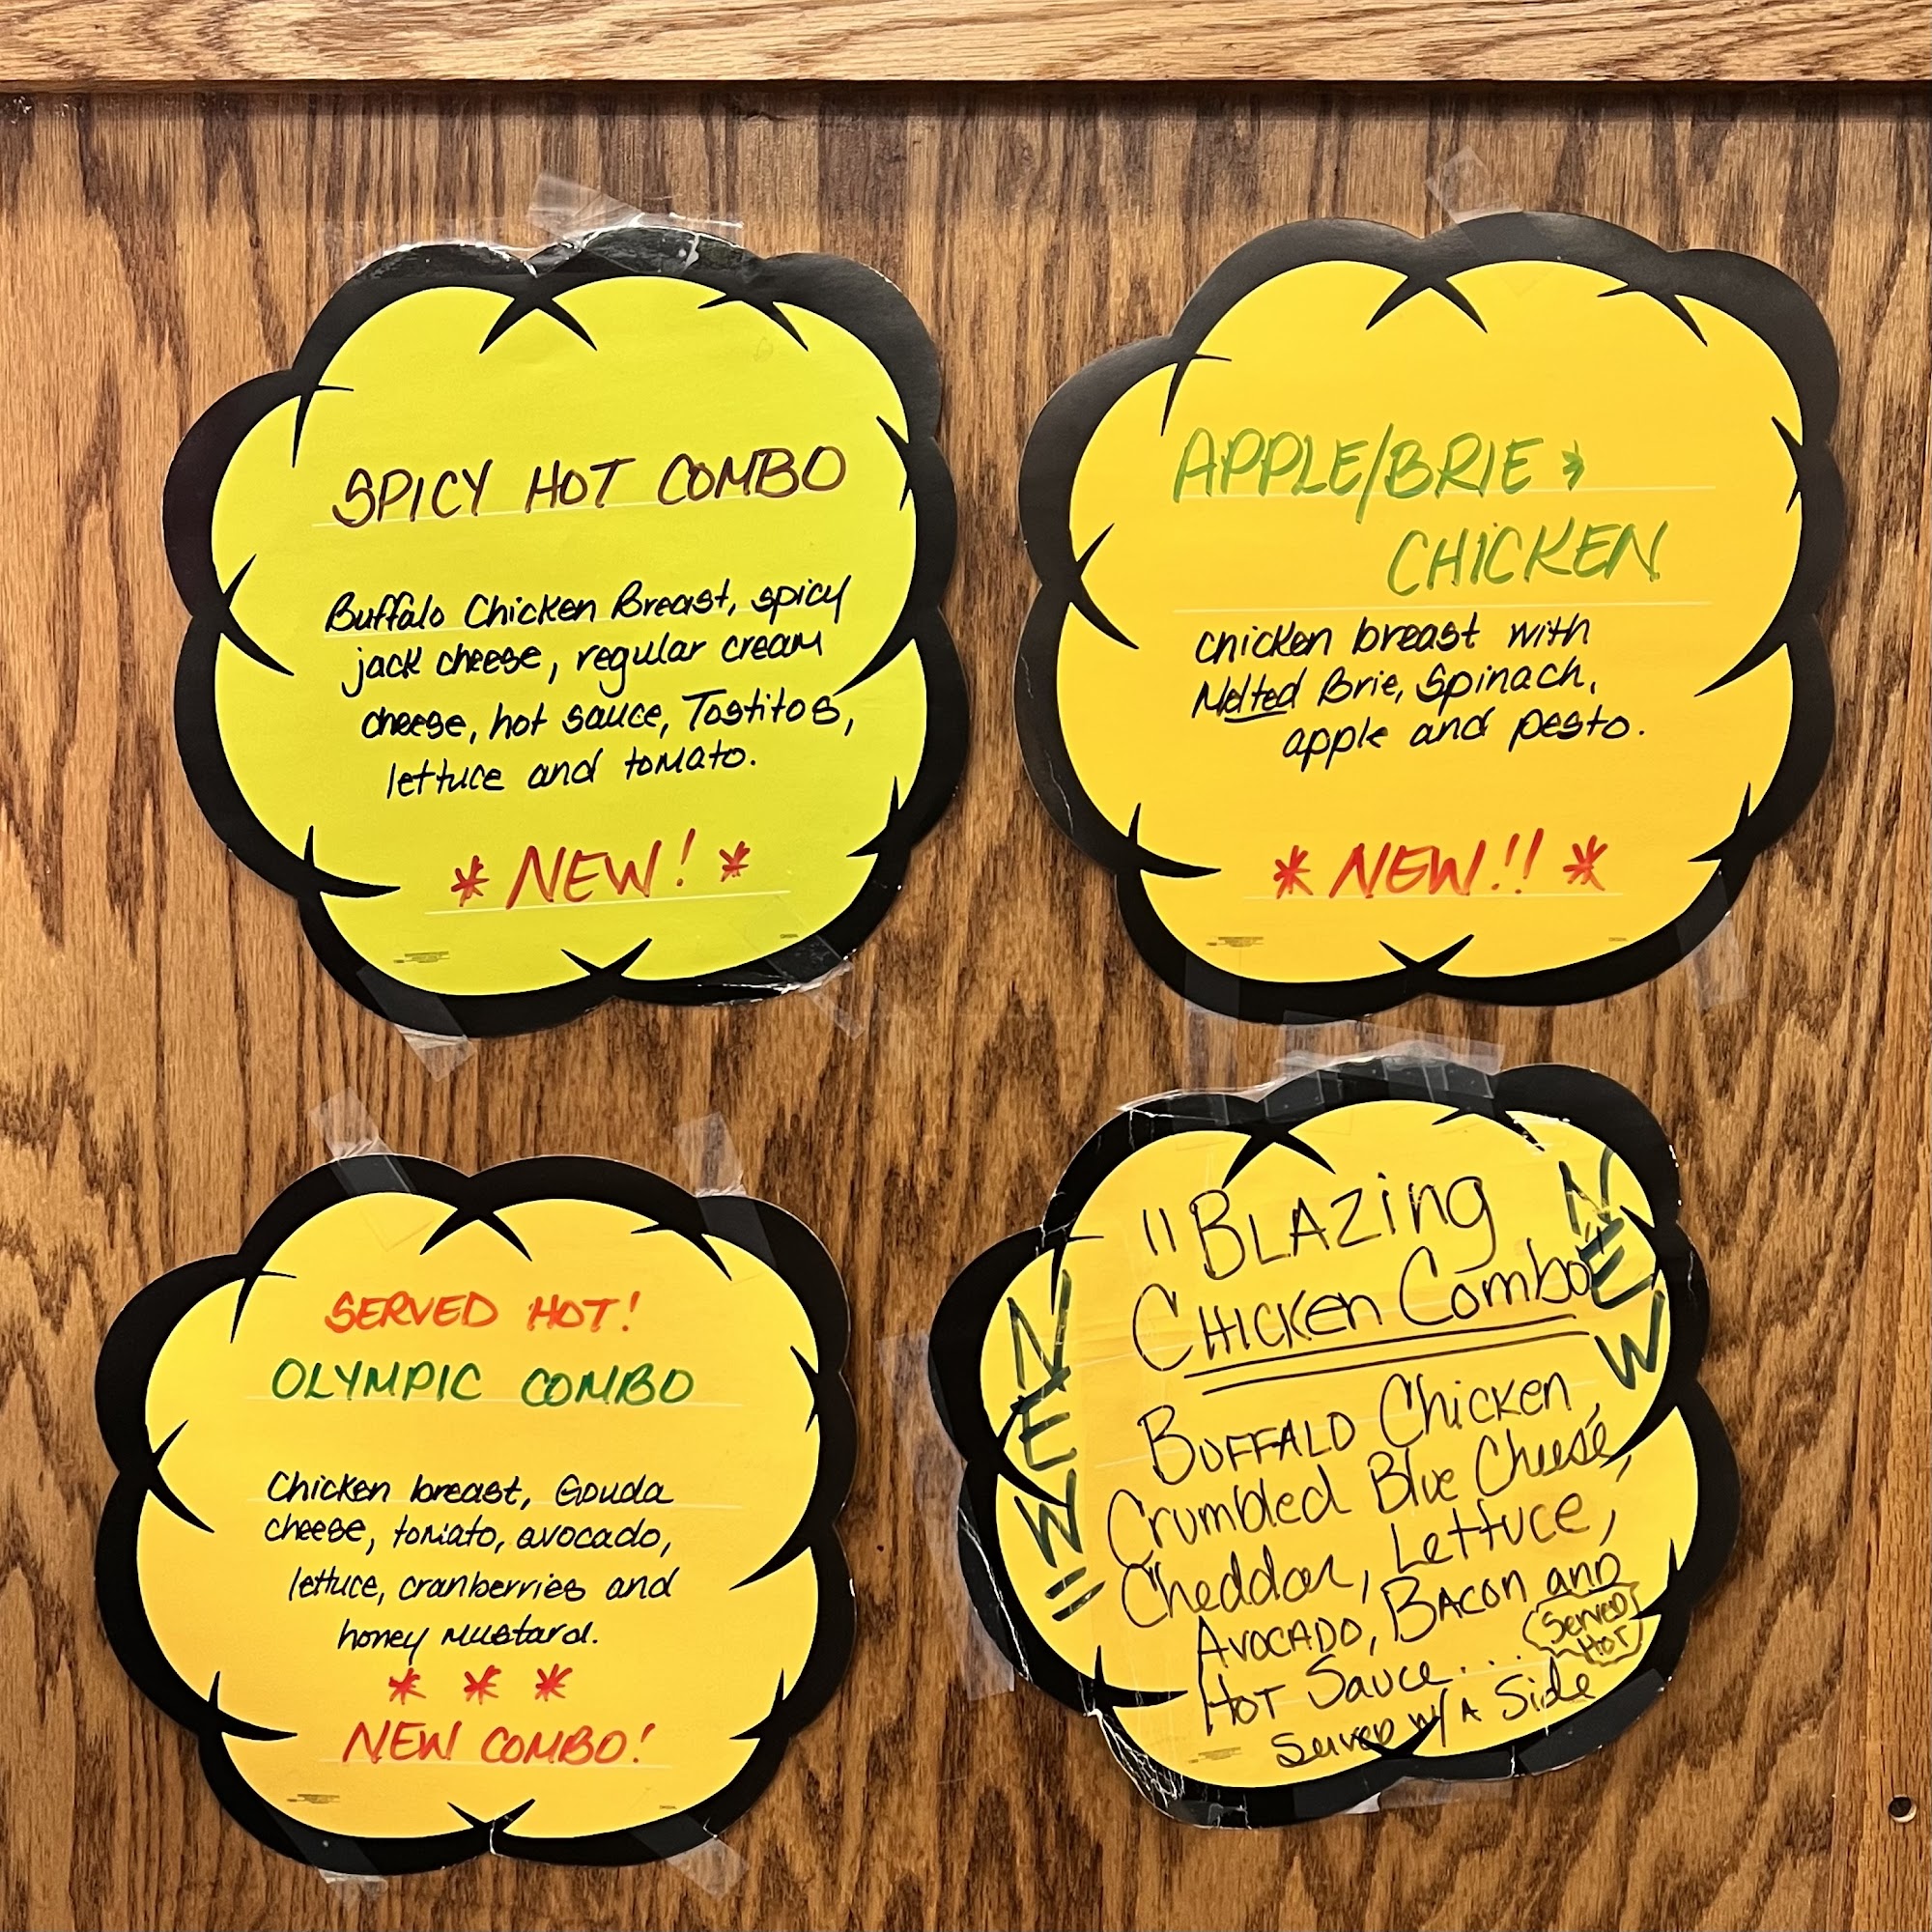 SPICY HOT COMBO
Buffalo Chicken Breast, spicy
jack cheese, regular cream
cheese, hot sauce, Tostitos,
lettuce and tomato.
* NEW! *
APPLE/BRIE &
CHICKEN
chicken breast with
Melted Brie, Spinach,
apple and pesto.
* NEW!! *
SERVED HOT!
OLYMPIC COMBO
Chicken breast, Gouda
cheese, tomato, avocado,
lettuce, cranberries and
honey mustard.
* * *
NEW COMBO!
"BLAZing
CHICKen Combo"
NEW
NEW!!
BUFFALO Chicken,
Crumbled Blue Cheese,
Cheddar, Lettuce,
AVOCADO, BACON and
HOT Sauce....
Served
HOT
Served w/ A Side